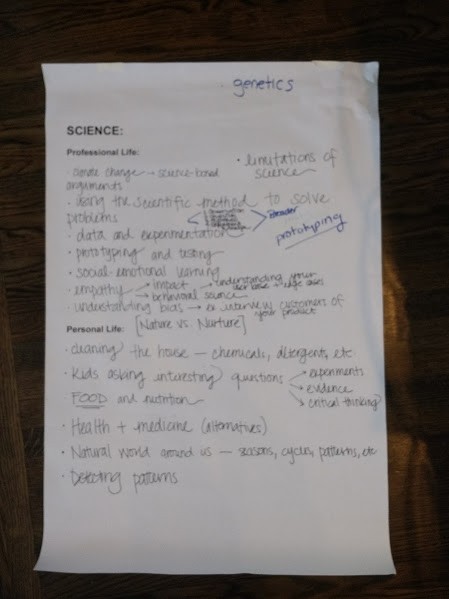 · genetics
SCIENCE:
Professional Life:
· limitations of
science
· climate change → science-based
arguments
· using the scientific method to solve
problems
Broader
prototyping
· data and experimentation
· prototyping and testing
· social emotional learning
· empathy → impact → understanding your
user base → edge cases
→ behavioral science
· understanding bias → ex. interview customers of
your product
[Nature vs. Nurture]
Personal Life:
· cleaning the house — chemicals, detergents, etc
· Kids asking interesting questions → experiments
→ evidence
→ critical thinking
FOOD and nutrition
· Health + medicine (alternatives)
· Natural world around us — seasons, cycles, patterns, etc
· Detecting patterns